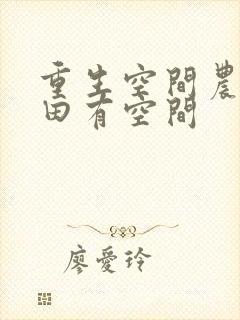 重生空間農
田有空間
廖愛玲